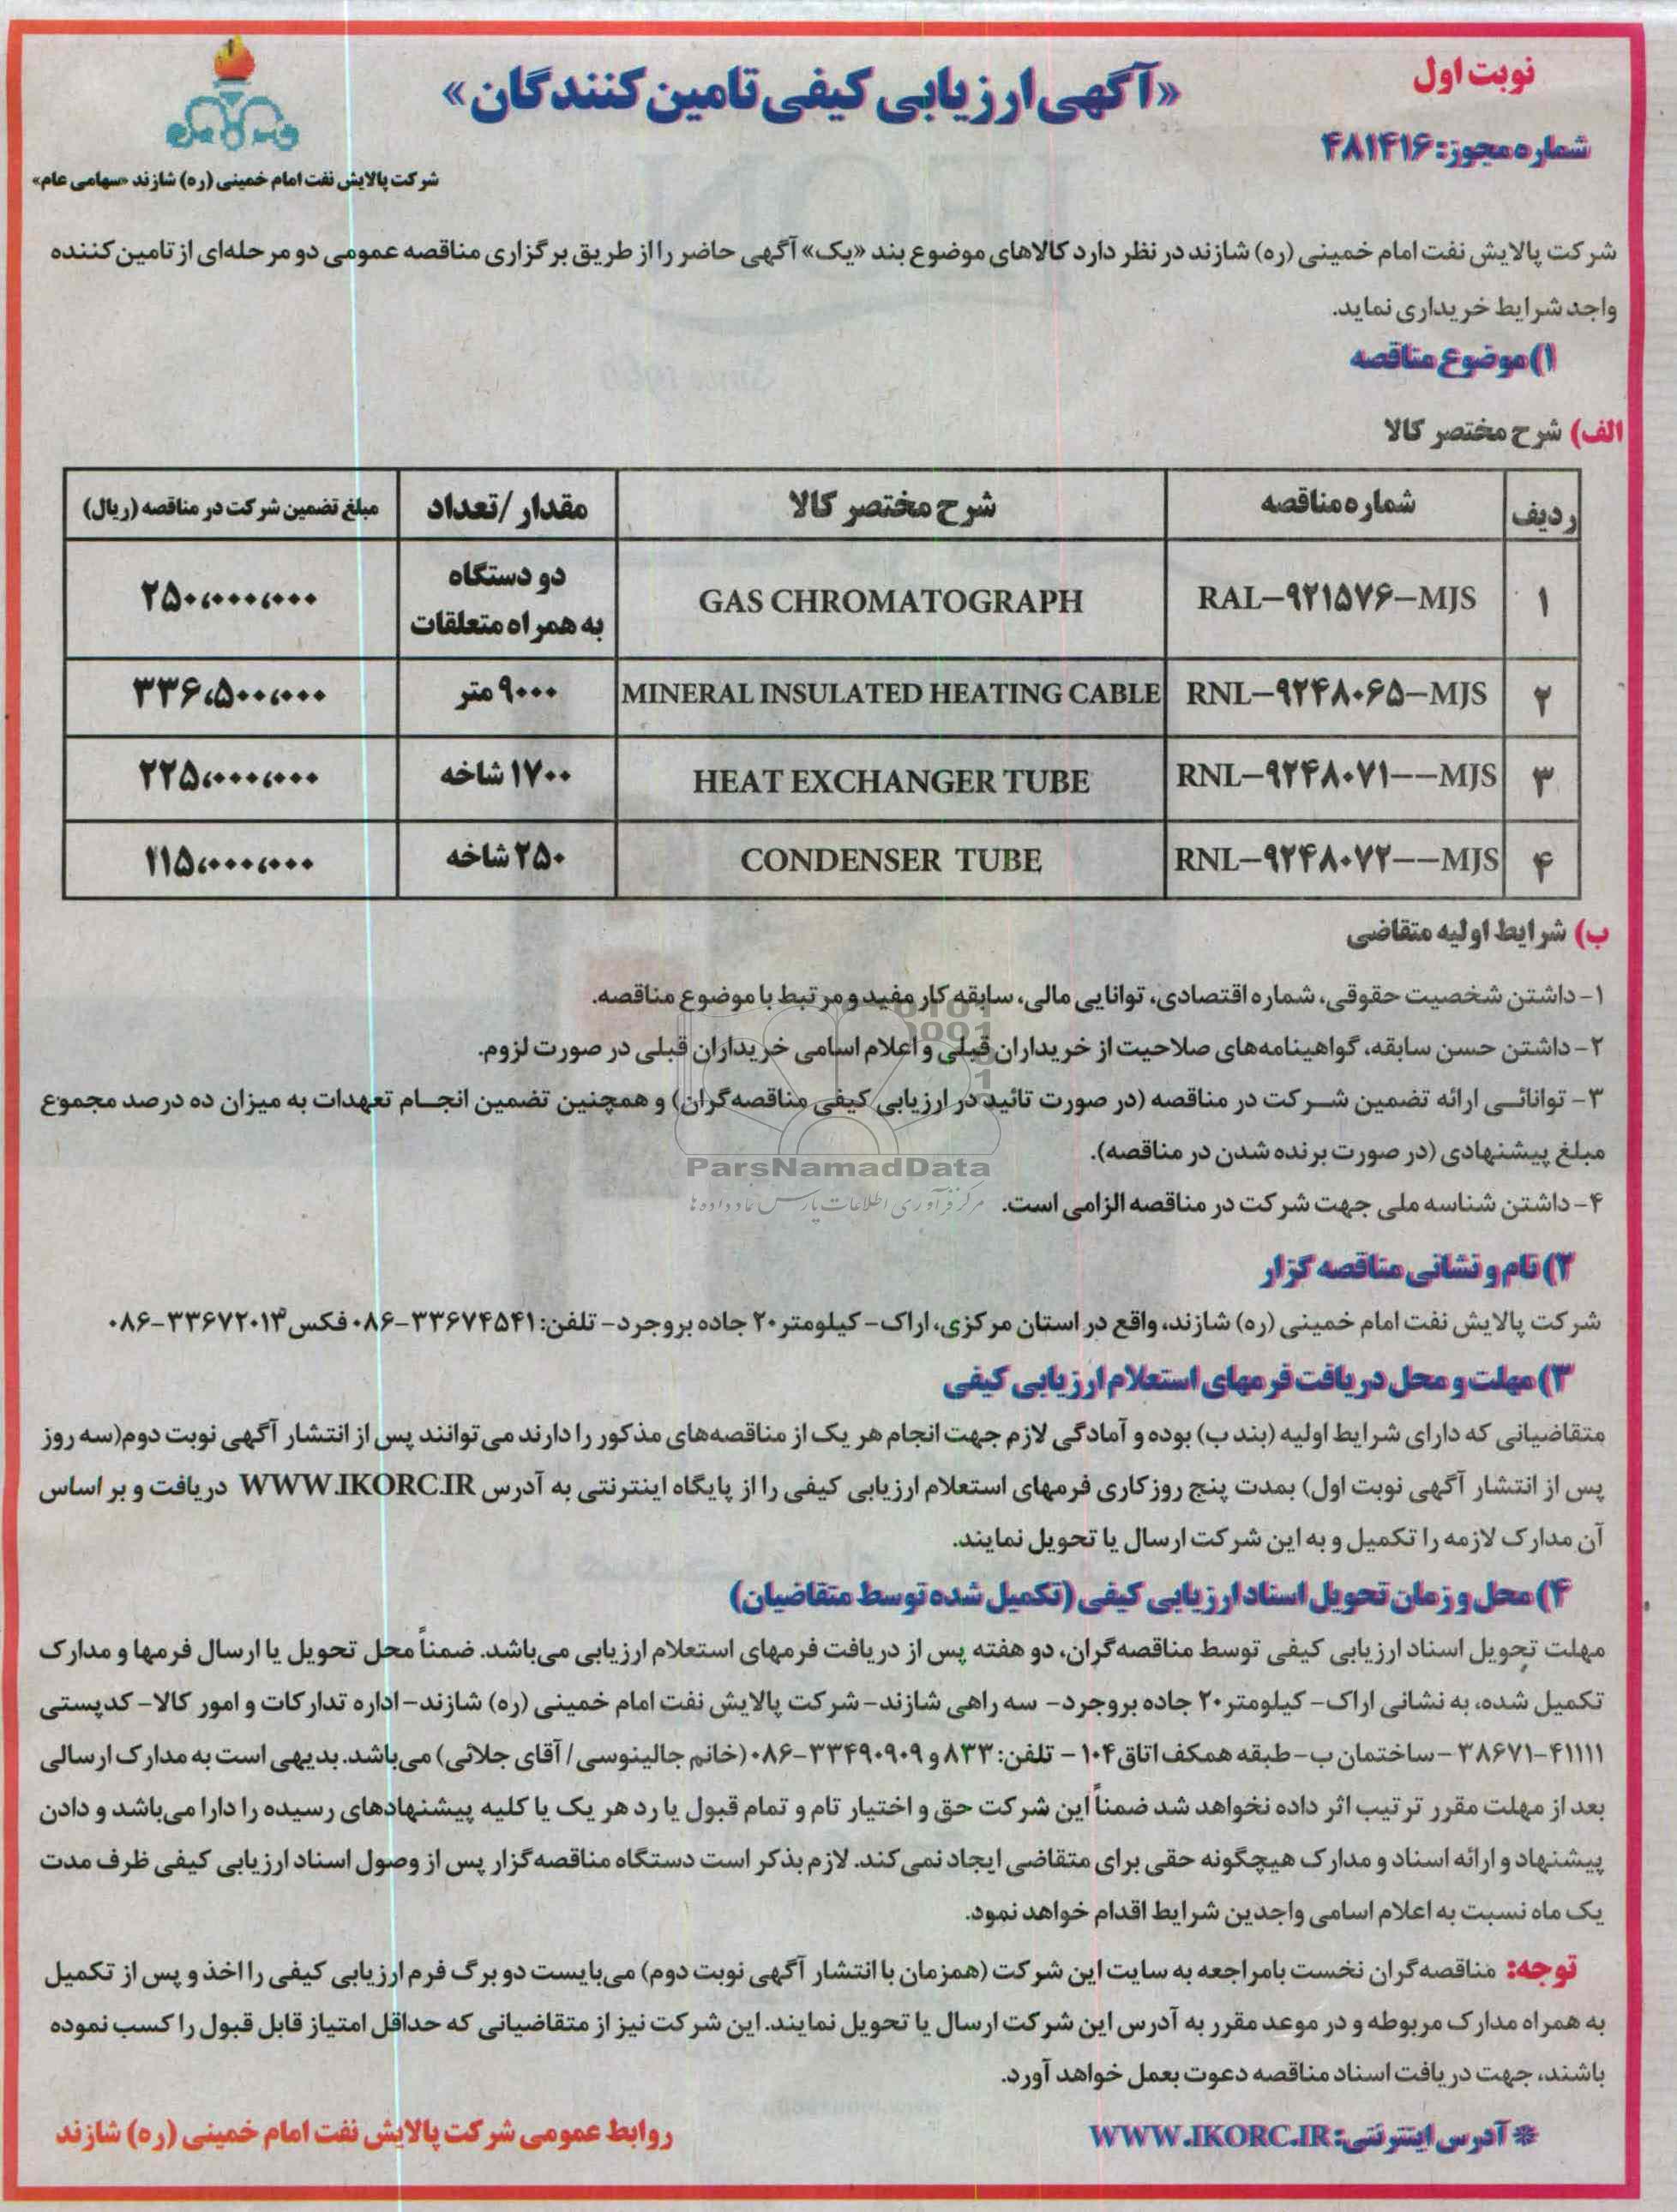 نوبت اول
«آگهی ارزیابی کیفی تامین کنندگان»
شماره مجوز: ۴۸۱۴۱۶
شرکت پالایش نفت امام خمینی (ره) شازند «سهامی عام»
شرکت پالایش نفت امام خمینی (ره) شازند در نظر دارد کالاهای موضوع بند «یک» آگهی حاضر را از طریق برگزاری مناقصه عمومی دو مرحله‌ای از تامین کننده
واجد شرایط خریداری نماید.
۱) موضوع مناقصه
الف) شرح مختصر کالا
ردیف شماره مناقصه شرح مختصر کالا مقدار /تعداد مبلغ تضمین شرکت در مناقصه (ریال)
۱ RAL-۹۲۱۵۷۶-MJS GAS CHROMATOGRAPH دو دستگاه به همراه متعلقات ۲۵۰،۰۰۰،۰۰۰
۲ RNL-۹۲۴۸۰۶۵-MJS MINERAL INSULATED HEATING CABLE ۹۰۰۰ متر ۳۳۶،۵۰۰،۰۰۰
۳ RNL-۹۲۴۸۰۷۱--MJS HEAT EXCHANGER TUBE ۱۷۰۰ شاخه ۲۲۵،۰۰۰،۰۰۰
۴ RNL-۹۲۴۸۰۷۲--MJS CONDENSER TUBE ۲۵۰ شاخه ۱۱۵،۰۰۰،۰۰۰
ب) شرایط اولیه متقاضی
۱- داشتن شخصیت حقوقی، شماره اقتصادی، توانایی مالی، سابقه کار مفید و مرتبط با موضوع مناقصه.
۲- داشتن حسن سابقه، گواهینامه‌های صلاحیت از خریداران قبلی و اعلام اسامی خریداران قبلی در صورت لزوم.
۳- توانائی ارائه تضمین شرکت در مناقصه (در صورت تائید در ارزیابی کیفی مناقصه‌گران) و همچنین تضمین انجام تعهدات به میزان ده درصد مجموع
مبلغ پیشنهادی (در صورت برنده شدن در مناقصه).
ParsNamadData
۴- داشتن شناسه ملی جهت شرکت در مناقصه الزامی است.
مرکز فرآوری اطلاعات پارس نماد داده ها
۲) نام و نشانی مناقصه گزار
شرکت پالایش نفت امام خمینی (ره) شازند، واقع در استان مرکزی، اراک- کیلومتر۲۰ جاده بروجرد- تلفن: ۳۳۶۷۴۵۴۱-۰۸۶ فکس ۳۳۶۷۲۰۱۳-۰۸۶
۳) مهلت و محل دریافت فرمهای استعلام ارزیابی کیفی
متقاضیانی که دارای شرایط اولیه (بند ب) بوده و آمادگی لازم جهت انجام هر یک از مناقصه‌های مذکور را دارند می‌توانند پس از انتشار آگهی نوبت دوم(سه روز
پس از انتشار آگهی نوبت اول) بمدت پنج روز کاری فرمهای استعلام ارزیابی کیفی را از پایگاه اینترنتی به آدرس WWW.IKORC.IR دریافت و بر اساس
آن مدارک لازمه را تکمیل و به این شرکت ارسال یا تحویل نمایند.
۴) محل و زمان تحویل اسناد ارزیابی کیفی (تکمیل شده توسط متقاضیان)
مهلت تحویل اسناد ارزیابی کیفی توسط مناقصه‌گران، دو هفته پس از دریافت فرمهای استعلام ارزیابی می‌باشد. ضمناً محل تحویل یا ارسال فرمها و مدارک
تکمیل شده، به نشانی اراک- کیلومتر۲۰ جاده بروجرد- سه راهی شازند- شرکت پالایش نفت امام خمینی (ره) شازند- اداره تدارکات و امور کالا- کدپستی
۳۸۶۷۱-۴۱۱۱۱ -ساختمان ب- طبقه همکف اتاق ۱۰۴ - تلفن: ۸۳۳ و ۳۳۴۹۰۹۰۹-۰۸۶ (خانم جالینوسی/ آقای جلائی) می‌باشد. بدیهی است به مدارک ارسالی
بعد از مهلت مقرر ترتیب اثر داده نخواهد شد ضمناً این شرکت حق و اختیار تام و تمام قبول یا رد هر یک یا کلیه پیشنهادهای رسیده را دارا می‌باشد و دادن
پیشنهاد و ارائه اسناد و مدارک هیچگونه حقی برای متقاضی ایجاد نمی‌کند. لازم بذکر است دستگاه مناقصه‌گزار پس از وصول اسناد ارزیابی کیفی ظرف مدت
یک ماه نسبت به اعلام اسامی واجدین شرایط اقدام خواهد نمود.
توجه: مناقصه‌گران نخست بامراجعه به سایت این شرکت (همزمان با انتشار آگهی نوبت دوم) می‌بایست دو برگ فرم ارزیابی کیفی را اخذ و پس از تکمیل
به همراه مدارک مربوطه و در موعد مقرر به آدرس این شرکت ارسال یا تحویل نمایند. این شرکت نیز از متقاضیانی که حداقل امتیاز قابل قبول را کسب نموده
باشند، جهت دریافت اسناد مناقصه دعوت بعمل خواهد آورد.
* آدرس اینترنتی: WWW.IKORC.IR
روابط عمومی شرکت پالایش نفت امام خمینی (ره) شازند